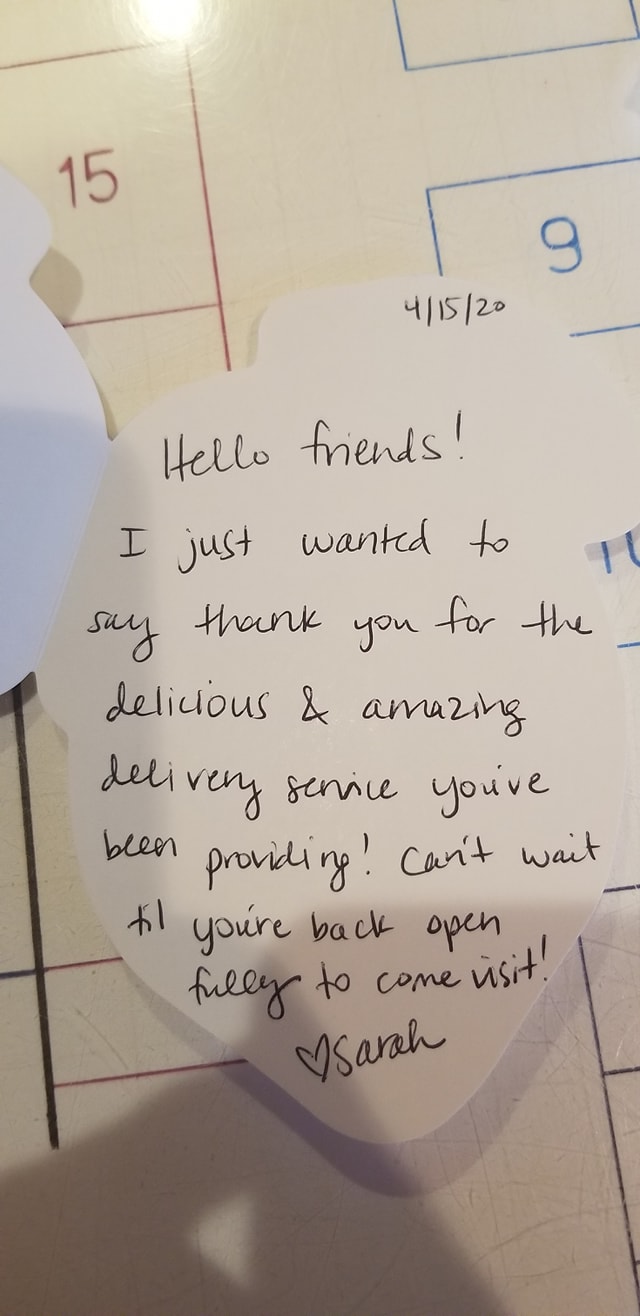 15
9
4/15/20
Hello friends!
I just wanted to
say thank you for the
delicious & amazing
delivery service you've
been providing! Can't wait
til you're back open
fully to come visit!
♡Sarah